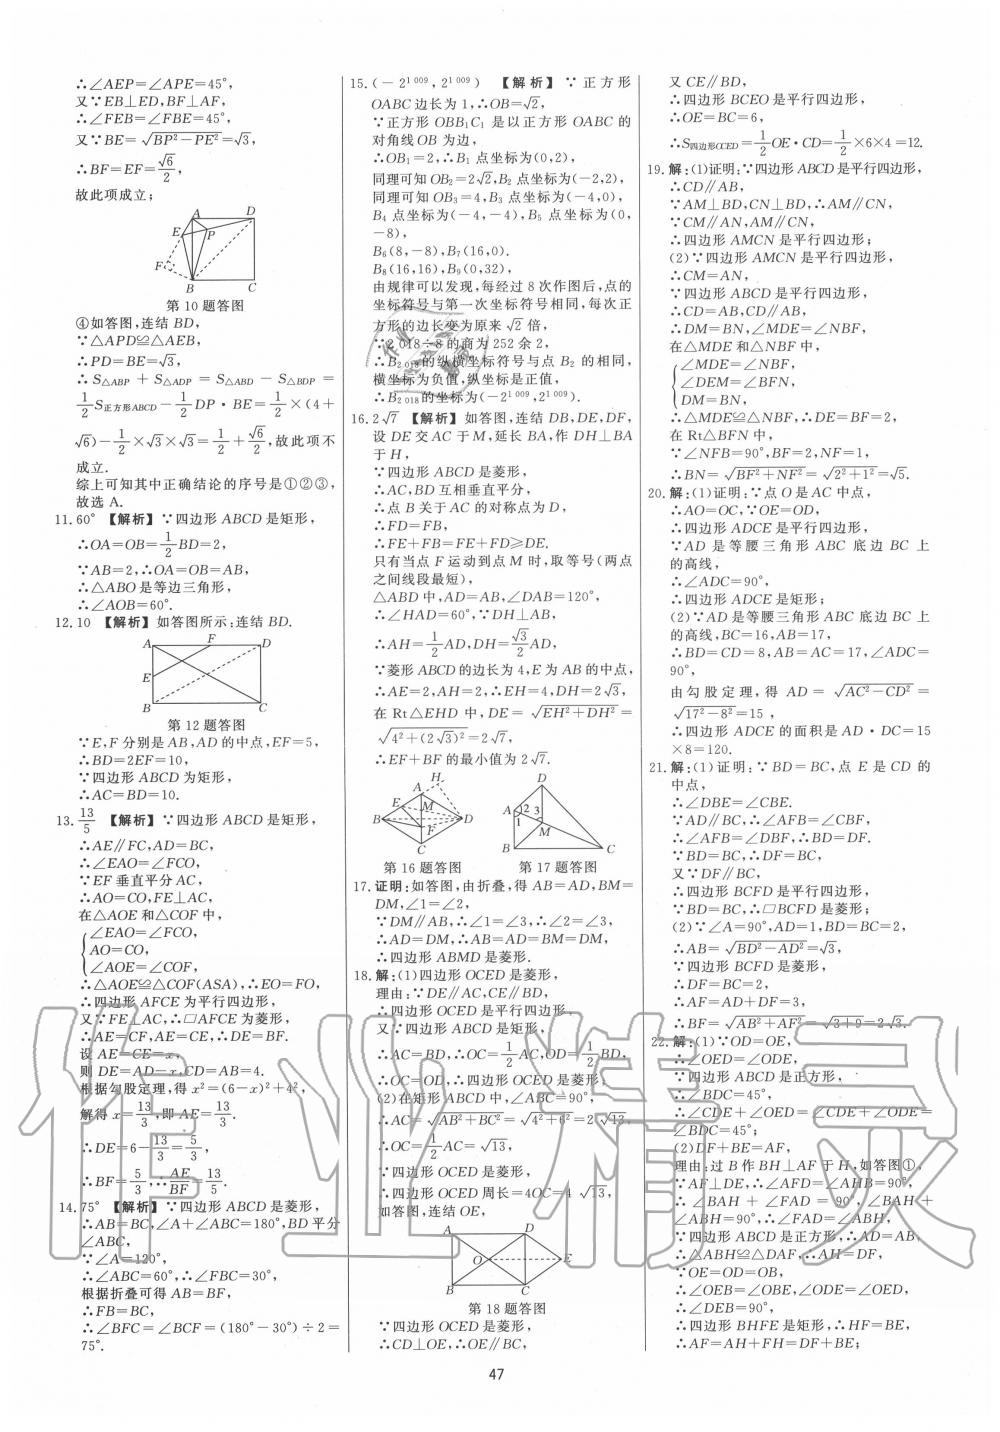 ∴∠AEP=∠APE=45°,
又∵EB⊥ED,BF⊥AF,
∴∠FEB=∠FBE=45°,
又∵BE=√BP²-PE²=√3,
∴BF=EF=√6/2,
故此项成立;
A D
E P
F
B C
第 10 题答图
④如答图,连结 BD,
∵△APD≌△AEB,
∴PD=BE=√3,
∴S△ABP+S△ADP=S△ABD-S△BDP=
1/2S正方形ABCD-1/2DP·BE=1/2×(4+
√6)-1/2×√3×√3=1/2+√6/2,故此项不
成立.
综上可知其中正确结论的序号是①②③,
故选 A.
11.60° 【解析】∵四边形 ABCD 是矩形,
∴OA=OB=1/2BD=2,
∵AB=2,∴OA=OB=AB,
∴△ABO是等边三角形,
∴∠AOB=60°.
12.10 【解析】如答图所示:连结 BD.
A F D
E
B C
第 12 题答图
∵E,F 分别是 AB,AD 的中点,EF=5,
∴BD=2EF=10,
∵四边形 ABCD 为矩形,
∴AC=BD=10.
13.13/5 【解析】∵四边形 ABCD 是矩形,
∴AE∥FC,AD=BC,
∴∠EAO=∠FCO,
∵EF 垂直平分 AC,
∴AO=CO,FE⊥AC,
在△AOE 和△COF 中,
∠EAO=∠FCO,
AO=CO,
∠AOE=∠COF,
∴△AOE≌△COF(ASA),∴EO=FO,
∴四边形 AFCE 为平行四边形,
又∵FE⊥AC,∴▱AFCE 为菱形,
∴AE=CF,AE=CE,∴DE=BF.
设 AE=CE=x,
则 DE=AD-x,CD=AB=4.
根据勾股定理,得 x²=(6-x)²+4²,
解得 x=13/3,即 AE=13/3.
∴DE=6-13/3=5/3,
∴BF=5/3,∴AE/BF=13/5.
14.75° 【解析】∵四边形 ABCD 是菱形,
∴AB=BC,∠A+∠ABC=180°,BD 平分
∠ABC,
∵∠A=120°,
∴∠ABC=60°,∴∠FBC=30°,
根据折叠可得 AB=BF,
∴FB=BC,
∴∠BFC=∠BCF=(180°-30°)÷2=
75°.
15.(-2^1 009,2^1 009) 【解析】∵正方形
OABC 边长为 1,∴OB=√2,
∵正方形 OBB₁C₁ 是以正方形 OABC 的
对角线 OB 为边,
∴OB₁=2,∴B₁ 点坐标为(0,2),
同理可知 OB₂=2√2,B₂ 点坐标为(-2,2),
同理可知 OB₃=4,B₃ 点坐标为(-4,0),
B₄ 点坐标为(-4,-4),B₅ 点坐标为(0,
-8),
B₆(8,-8),B₇(16,0).
B₈(16,16),B₉(0,32),
由规律可以发现,每经过 8 次作图后,点的
坐标符号与第一次坐标符号相同,每次正
方形的边长变为原来√2 倍,
∵2 018÷8 的商为 252 余 2,
∴B₂ ₀₁₈的纵横坐标符号与点 B₂ 的相同,
横坐标为负值,纵坐标是正值,
∴B₂ ₀₁₈的坐标为(-2^1 009,2^1 009).
16.2√7 【解析】如答图,连结 DB,DE,DF,
设 DE 交 AC 于 M,延长 BA,作 DH⊥BA
于 H,
∵四边形 ABCD 是菱形,
∴AC,BD 互相垂直平分,
∴点 B 关于 AC 的对称点为 D,
∴FD=FB,
∴FE+FB=FE+FD≥DE.
只有当点 F 运动到点 M 时,取等号(两点
之间线段最短),
△ABD 中,AD=AB,∠DAB=120°,
∴∠HAD=60°,∵DH⊥AB,
∴AH=1/2AD,DH=√3/2AD,
∵菱形 ABCD 的边长为 4,E 为 AB 的中点,
∴AE=2,AH=2,∴EH=4,DH=2√3,
在 Rt△EHD 中,DE=√EH²+DH²=
√4²+(2√3)²=2√7,
∴EF+BF 的最小值为 2√7.
H D
A
E M A 2 3
B D 1
F M
C B C
第 16 题答图 第 17 题答图
17.证明:如答图,由折叠,得 AB=AD,BM=
DM,∠1=∠2,
∵DM∥AB,∴∠1=∠3,∴∠2=∠3,
∴AD=DM,∴AB=AD=BM=DM,
∴四边形 ABMD 是菱形.
18.解:(1)四边形 OCED 是菱形,
理由:∵DE∥AC,CE∥BD,
∴四边形 OCED 是平行四边形,
又∵四边形 ABCD 是矩形,
∴AC=BD,∴OC=1/2AC,OD=1/2BD,
∴OC=OD,∴四边形 OCED 是菱形;
(2)在矩形 ABCD 中,∠ABC=90°,
∴AC=√AB²+BC²=√4²+6²=2√13,
∴OC=1/2AC=√13,
∵四边形 OCED 是菱形,
∴四边形 OCED 周长=4OC=4√13,
如答图,连结 OE,
A D
O E
B C
第 18 题答图
∵四边形 OCED 是菱形,
∴CD⊥OE,∴OE∥BC,
又 CE∥BD,
∴四边形 BCEO 是平行四边形,
∴OE=BC=6,
∴S四边形OCED=1/2OE·CD=1/2×6×4=12.
19.解:(1)证明:∵四边形 ABCD 是平行四边形,
∴CD∥AB,
∵AM⊥BD,CN⊥BD,∴AM∥CN,
∵CM∥AN,AM∥CN,
∴四边形 AMCN 是平行四边形;
(2)∵四边形 AMCN 是平行四边形,
∴CM=AN,
∵四边形 ABCD 是平行四边形,
∴CD=AB,CD∥AB,
∴DM=BN,∠MDE=∠NBF,
在△MDE 和△NBF 中,
∠MDE=∠NBF,
∠DEM=∠BFN,
DM=BN,
∴△MDE≌△NBF,∴DE=BF=2,
在 Rt△BFN 中,
∵∠NFB=90°,BF=2,NF=1,
∴BN=√BF²+NF²=√2²+1²=√5.
20.解:(1)证明:∵点 O 是 AC 中点,
∴AO=OC,∵OE=OD,
∴四边形 ADCE 是平行四边形,
∵AD 是等腰三角形 ABC 底边 BC 上
的高线,
∴∠ADC=90°,
∴四边形 ADCE 是矩形;
(2)∵AD 是等腰三角形 ABC 底边 BC 上
的高线,BC=16,AB=17,
∴BD=CD=8,AB=AC=17,∠ADC=
90°,
由勾股定理,得 AD=√AC²-CD²=
√17²-8²=15,
∴四边形 ADCE 的面积是 AD·DC=15
×8=120.
21.解:(1)证明:∵BD=BC,点 E 是 CD 的
中点,
∴∠DBE=∠CBE.
∵AD∥BC,∴∠AFB=∠CBF,
∴∠AFB=∠DBF,∴BD=DF.
∵BD=BC,∴DF=BC,
又∵DF∥BC,
∴四边形 BCFD 是平行四边形,
∵BD=BC,∴▱BCFD 是菱形;
(2)∵∠A=90°,AD=1,BD=BC=2,
∴AB=√BD²-AD²=√3,
∵四边形 BCFD 是菱形,
∴DF=BC=2,
∴AF=AD+DF=3,
∴BF=√AB²+AF²=√3+9=2√3.
22.解:(1)∵OD=OE,
∴∠OED=∠ODE,
∵四边形 ABCD 是正方形,
∴∠BDC=45°,
∴∠CDE+∠OED=∠CDE+∠ODE=
∠BDC=45°;
(2)DF+BE=AF,
理由:过 B 作 BH⊥AF 于 H,如答图①,
∵AF⊥DE,∴∠AFD=∠AHB=90°,
∴∠BAH+∠FAD=90°,∠BAH+
∠ABH=90°,∴∠FAD=∠ABH,
∵四边形 ABCD 是正方形,∴AD=AB,
∴△ABH≌△DAF,∴AH=DF,
∵OE=OD=OB,
∴∠OEB=∠OBE,∠ODE=∠OED,
∴∠DEB=90°,
∴四边形 BHFE 是矩形,∴HF=BE,
∴AF=AH+FH=DF+BE;
作业精灵
47